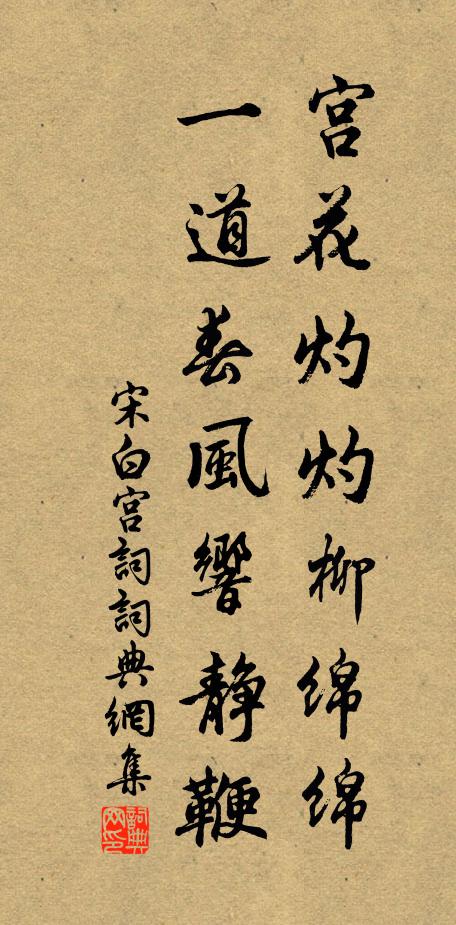 宫花灼灼柳绵绵
一道春風響静鞭
宋白宫詞詞典網集
詞典網印